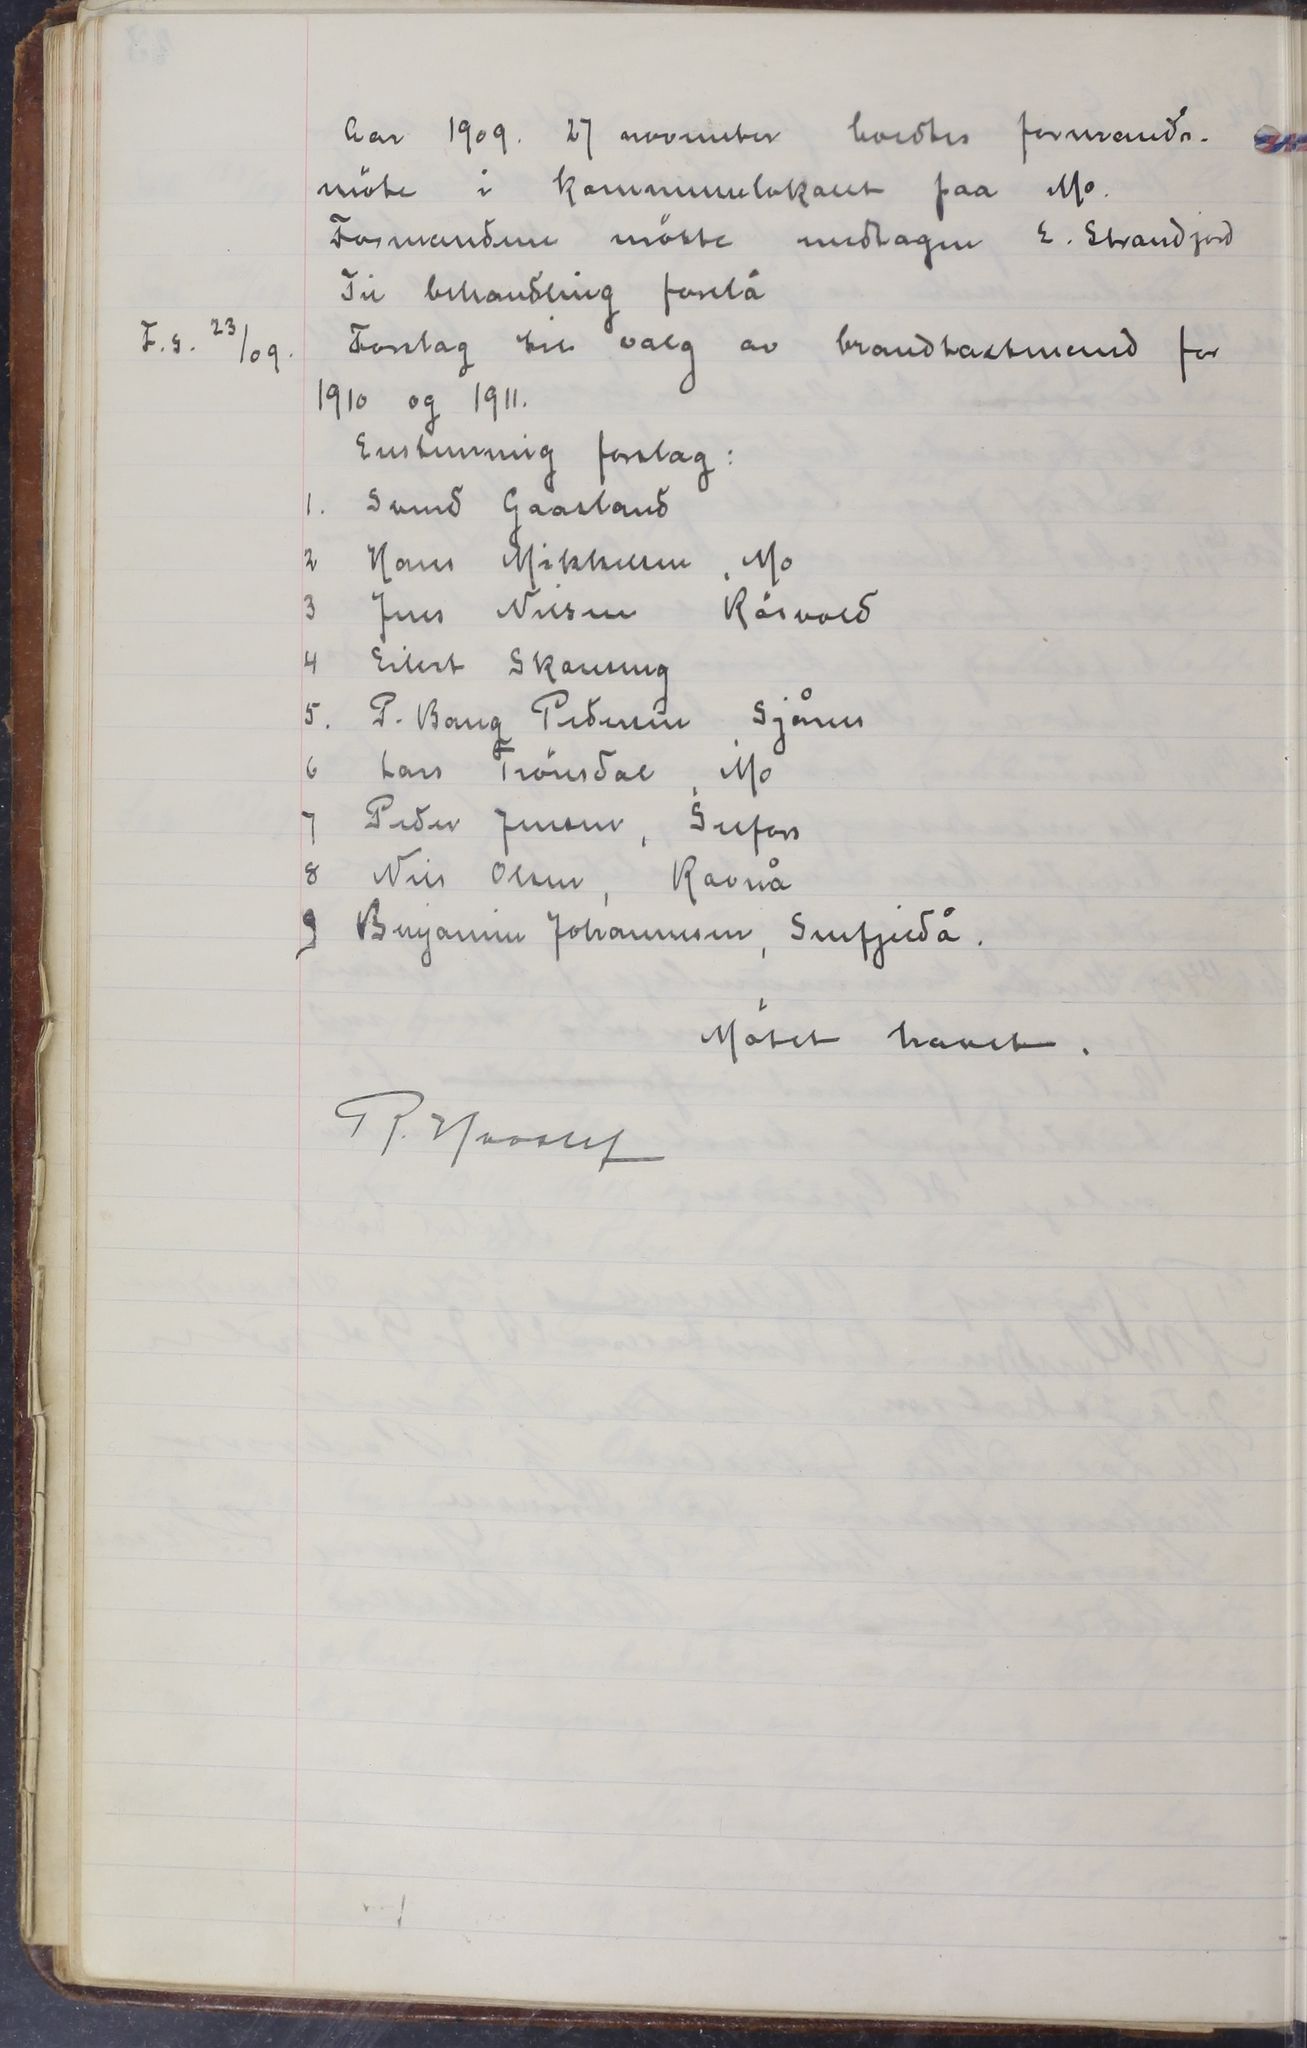 Aar 1909. 27 november holdtes formands-
møte i kommunelokalet paa Mo.
Formændene møtte undtagen E. Strandjord
Til behandling forelå
F. s. 23/09. Forslag til valg av brandtakstmænd for
1910 og 1911.
Enstemmig forslag:
1. Svend Gaasland
2 Hans Mikkelsen, Mo
3 Jens Nilsen Røsvold
4 Eilert Skonseng
5. P. Bang Pedersen Sjånes
6 Lars Trønsdal, Mo
7 Peder Jensen, Selfors
8 Nils Olsen, Ravnå
9 Benjamin Johannesen, Snefjeldå.
Møtet hævet.